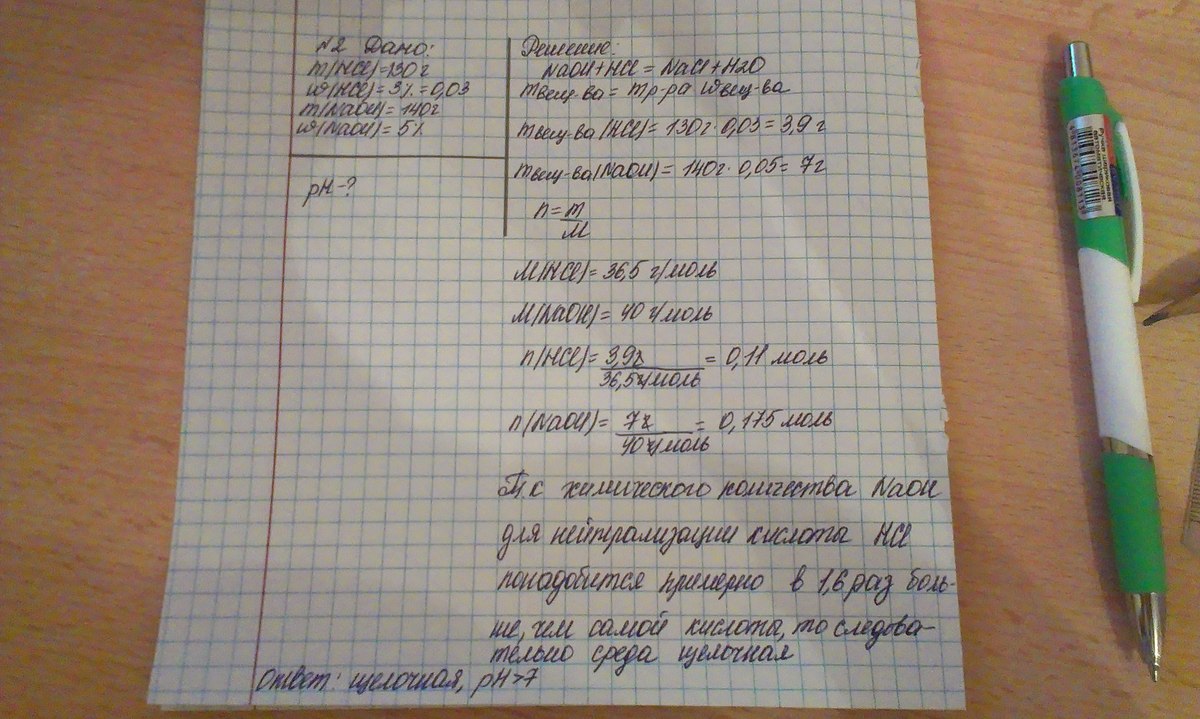 №2 Дано:
m(HCl)=130г
ω(HCl)= 3% =0,03
m(NaOH)= 140г
ω(NaOH)= 5%
pH-?
Решение:
NaOH+HCl = NaCl+H2O
mвещ-ва= mр-ра ωвещ-ва
mвещ-ва(HCl)= 130г· 0,03= 3,9 г
mвещ-ва(NaOH)= 140г· 0,05= 7г
n= m/M
M(HCl)= 36,5 г/моль
M(NaOH)= 40 г/моль
n(HCl)= 3,9г/36,5г/моль = 0,11 моль
n(NaOH)= 7г/40г/моль = 0,175 моль
Т к химического количества NaOH
для нейтрализации кислота HCl
понадобится примерно в 1,6 раз боль-
ше, чем самой кислота, то следова-
тельно среда щелочная
Ответ: щелочная, pH>7